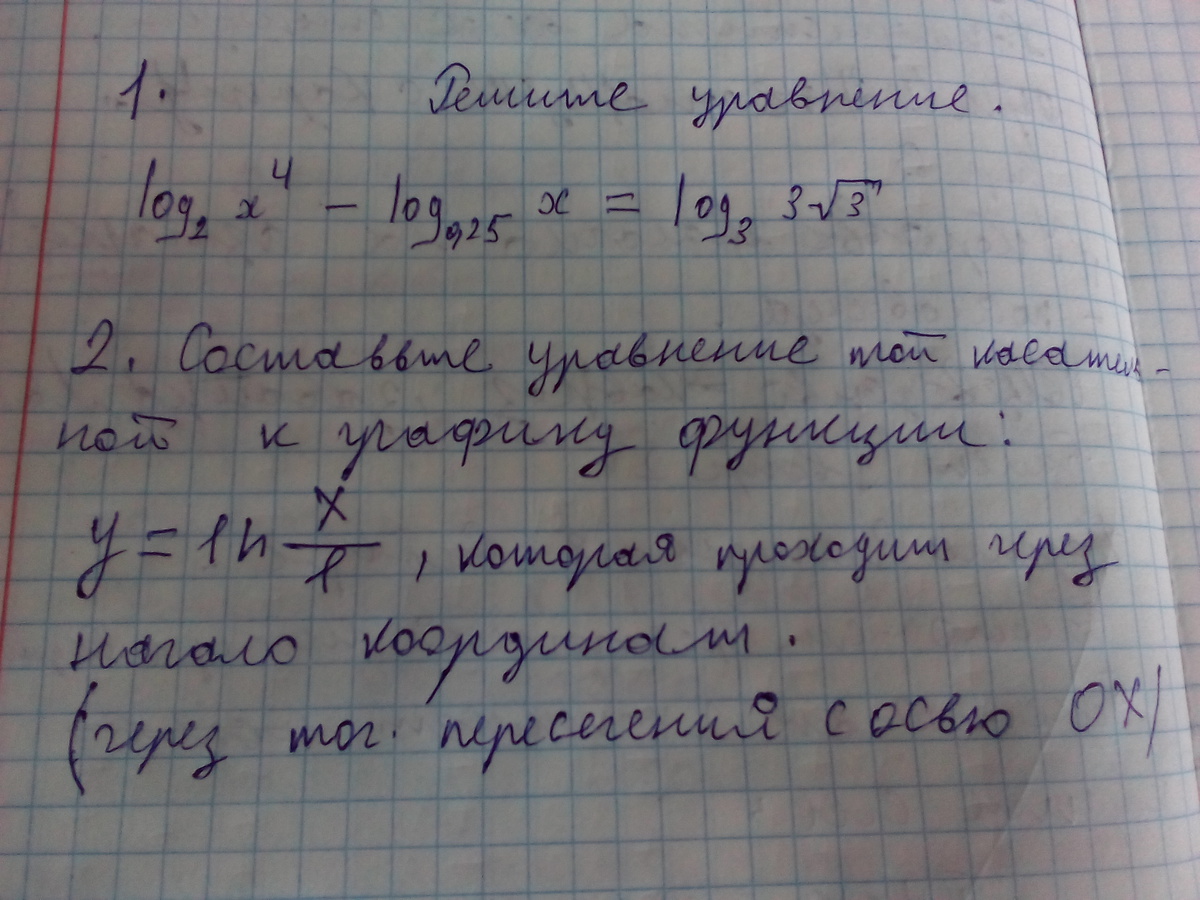 1. Решите уравнение.
log₂ x⁴ − log₀,₂₅ x = log₃ 3√3
2. Составьте уравнение той касатель-
ной к графику функции:
y = ln x/e, которая проходит через
начало координат.
(через точ. пересечения с осью OX)